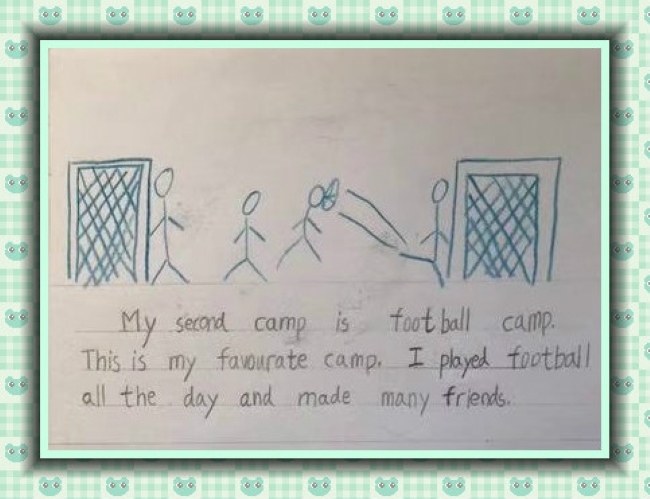 My second camp is football camp.
This is my favourate camp. I played football
all the day and made many friends.